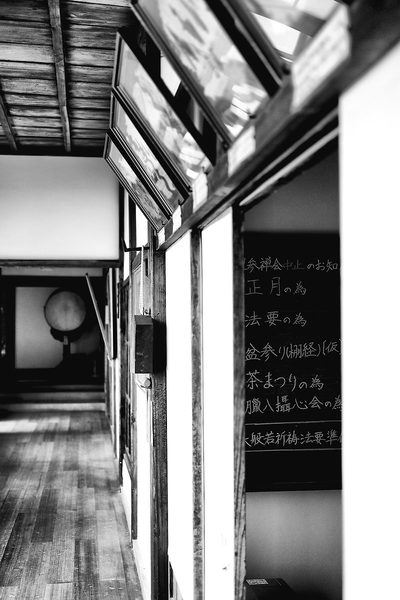 参禅会中止のお知
正月の為
法要の為
盆参り(棚経)(仮
茶まつりの為
臘八攝心会の為
大般若祈祷法要準